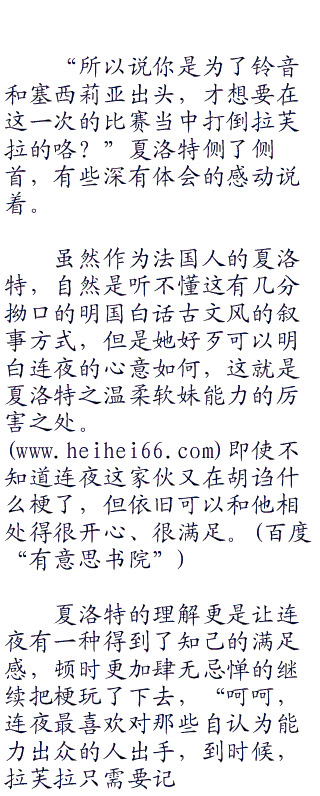 “所以说你是为了铃音
和塞西莉亚出头，才想要在
这一次的比赛当中打倒拉芙
拉的咯？”夏洛特侧了侧
首，有些深有体会的感动说
着。
虽然作为法国人的夏洛
特，自然是听不懂这有几分
拗口的明国白话古文风的叙
事方式，但是她好歹可以明
白连夜的心意如何，这就是
夏洛特之温柔软妹能力的厉
害之处。
(www.heihei66.com)即使不
知道连夜这家伙又在胡诌什
么梗了，但依旧可以和他相
处得很开心、很满足。(百度
“有意思书院”)
夏洛特的理解更是让连
夜有一种得到了知己的满足
感，顿时更加肆无忌惮的继
续把梗玩了下去，“呵呵，
连夜最喜欢对那些自认为能
力出众的人出手，到时候，
拉芙拉只需要记